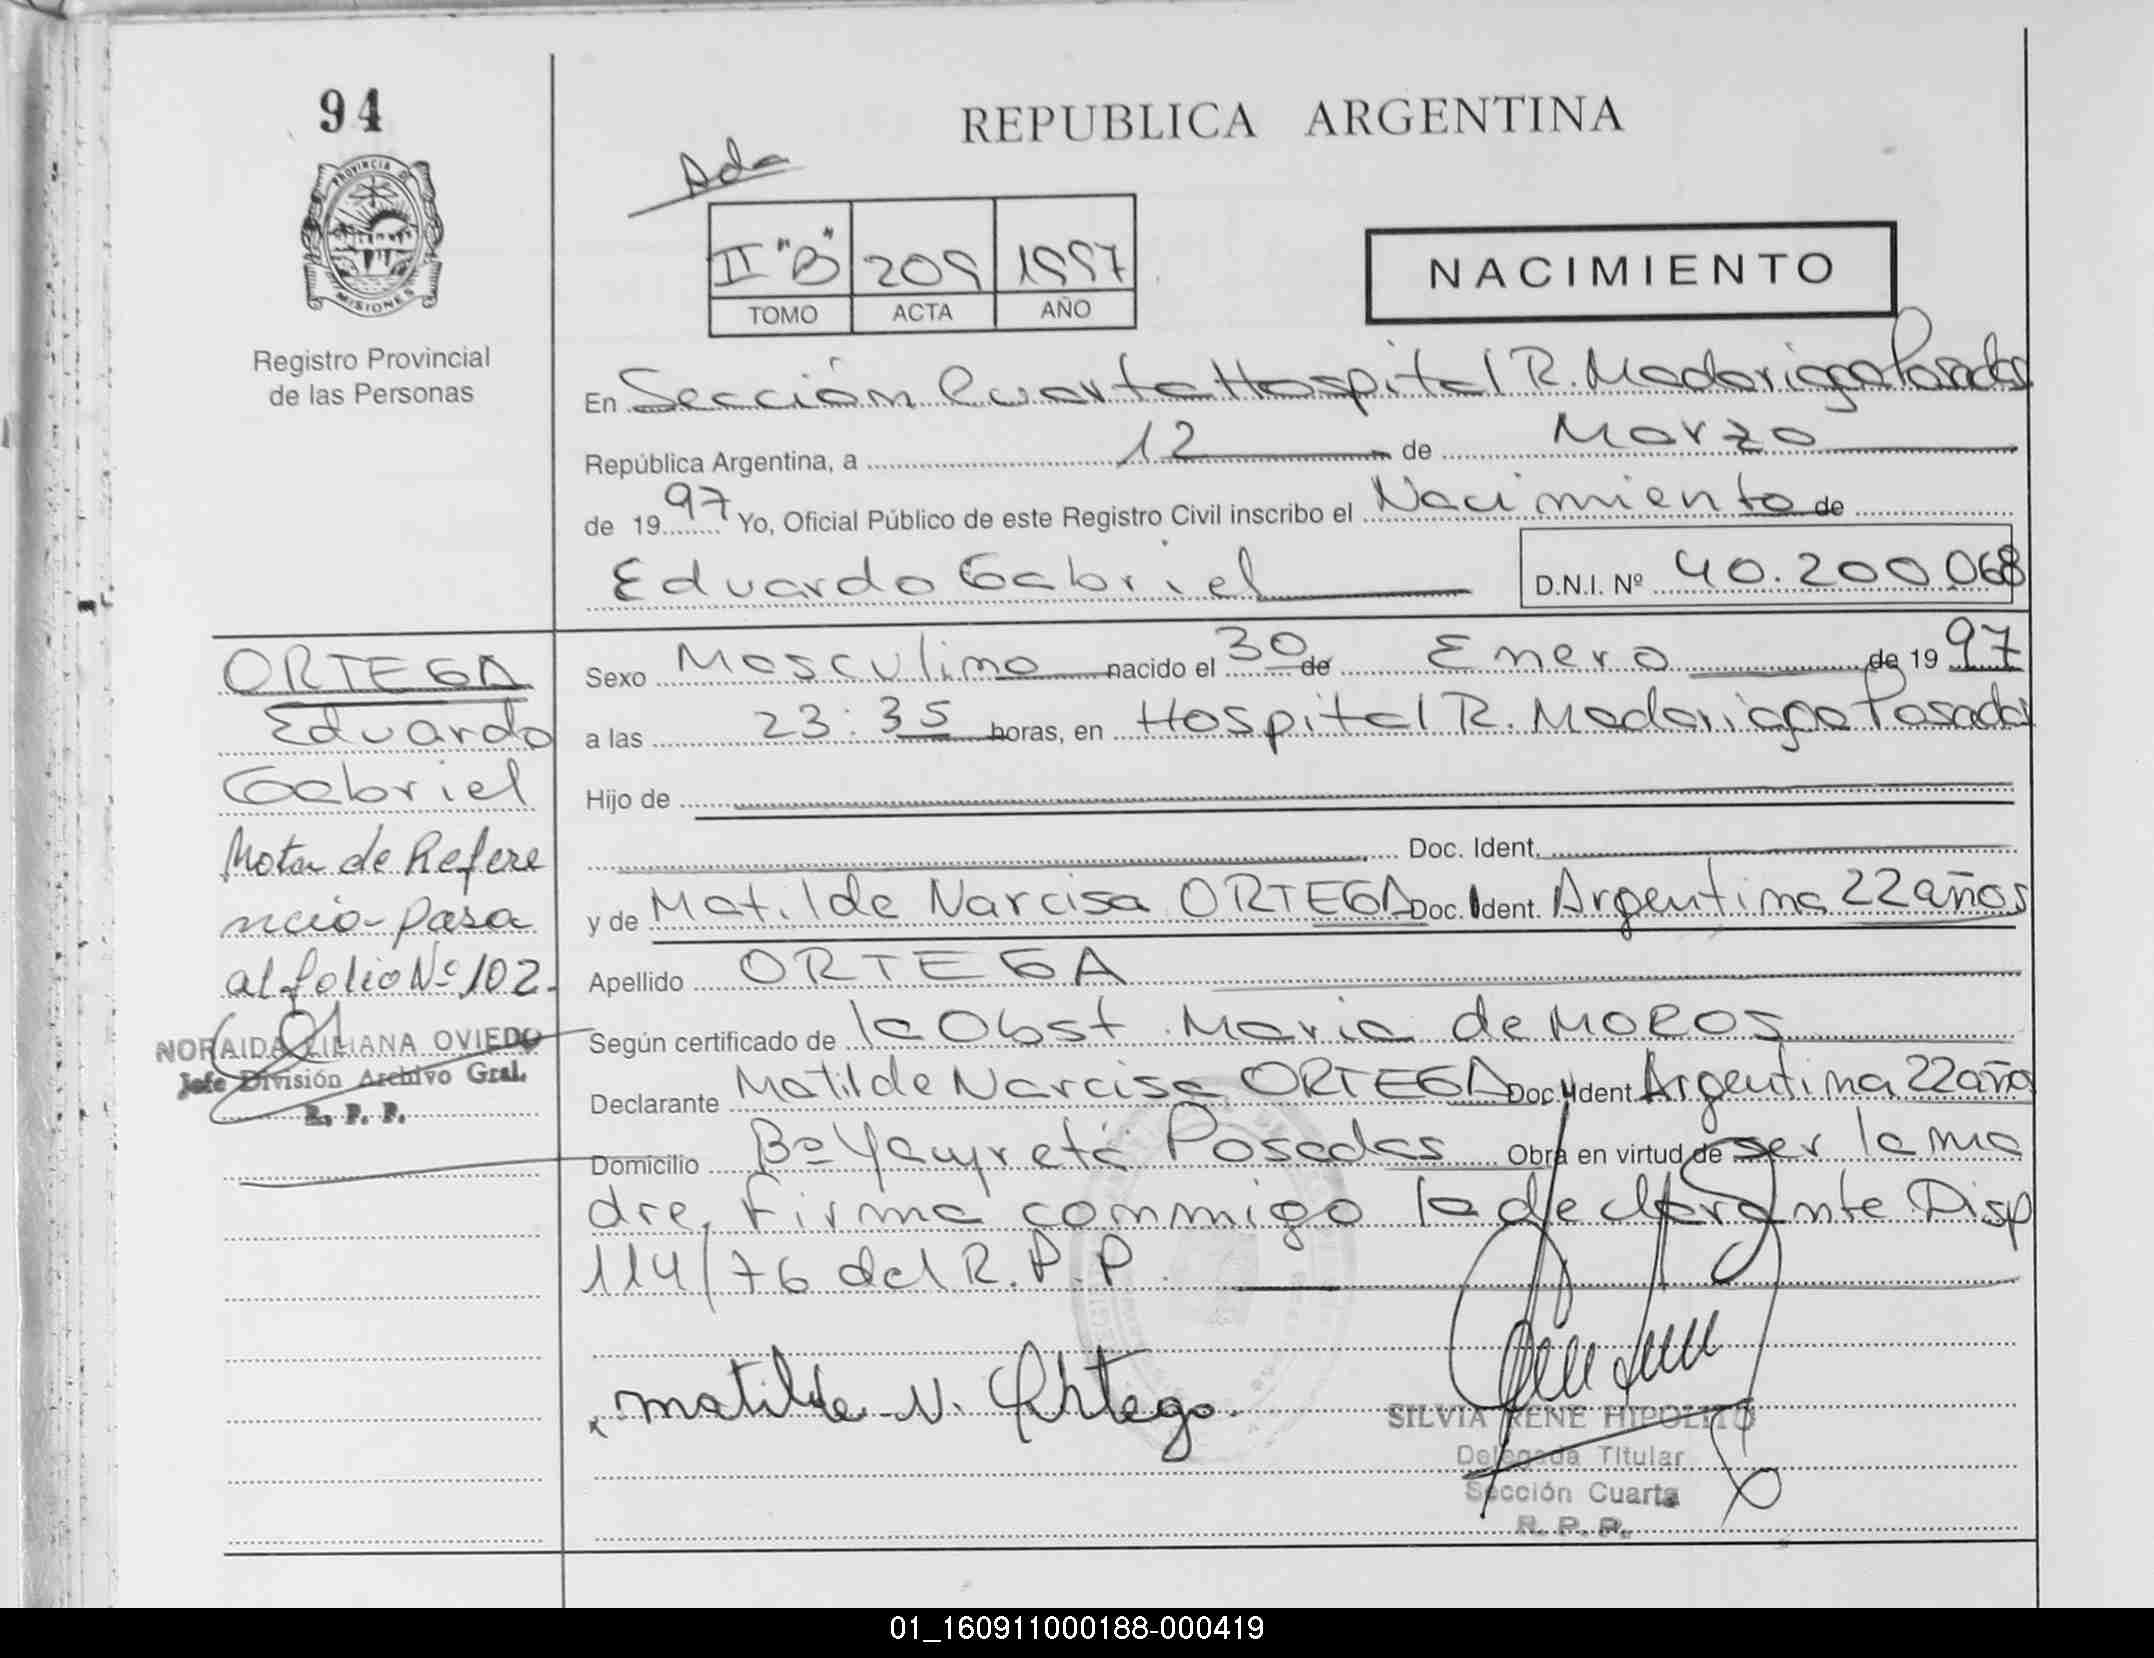 94
REPUBLICA ARGENTINA
Ada
PROVINCIA D
MISIONES
II "B" 209 1997
TOMO ACTA AÑO
NACIMIENTO
Registro Provincial
de las Personas
En Sección Cuarta Hospital R. Madariaga Posadas
República Argentina, a 12 de Marzo
de 1997 Yo, Oficial Público de este Registro Civil inscribo el Nacimiento de
Eduardo Gabriel D.N.I. Nº 40.200.068
ORTEGA
Eduardo
Gabriel
Nota de Refere
ncia-pasa
al folio Nº 102.
NORAIDA LILIANA OVIEDO
Jefe División Archivo Gral.
R. P. P.
Sexo Masculino nacido el 30 de Enero de 1997
a las 23:35 horas, en Hospital R. Madariaga Posadas
Hijo de
Doc. Ident.
y de Matilde Narcisa ORTEGA Doc. Ident. Argentina 22 años
Apellido ORTEGA
Según certificado de la Obst. Maria de MOROS
Declarante Matilde Narcisa ORTEGA Doc. Ident. Argentina 22 año
Domicilio Bº Yacyretá Posadas Obra en virtud de ser la ma
dre, Firma conmigo la declarante Disp
114/76 del R.P.P.
Matilde N. Ortega.
SILVIA RENE HIPOLITO
Delegada Titular
Sección Cuarta
R. P. P.
01_160911000188-000419